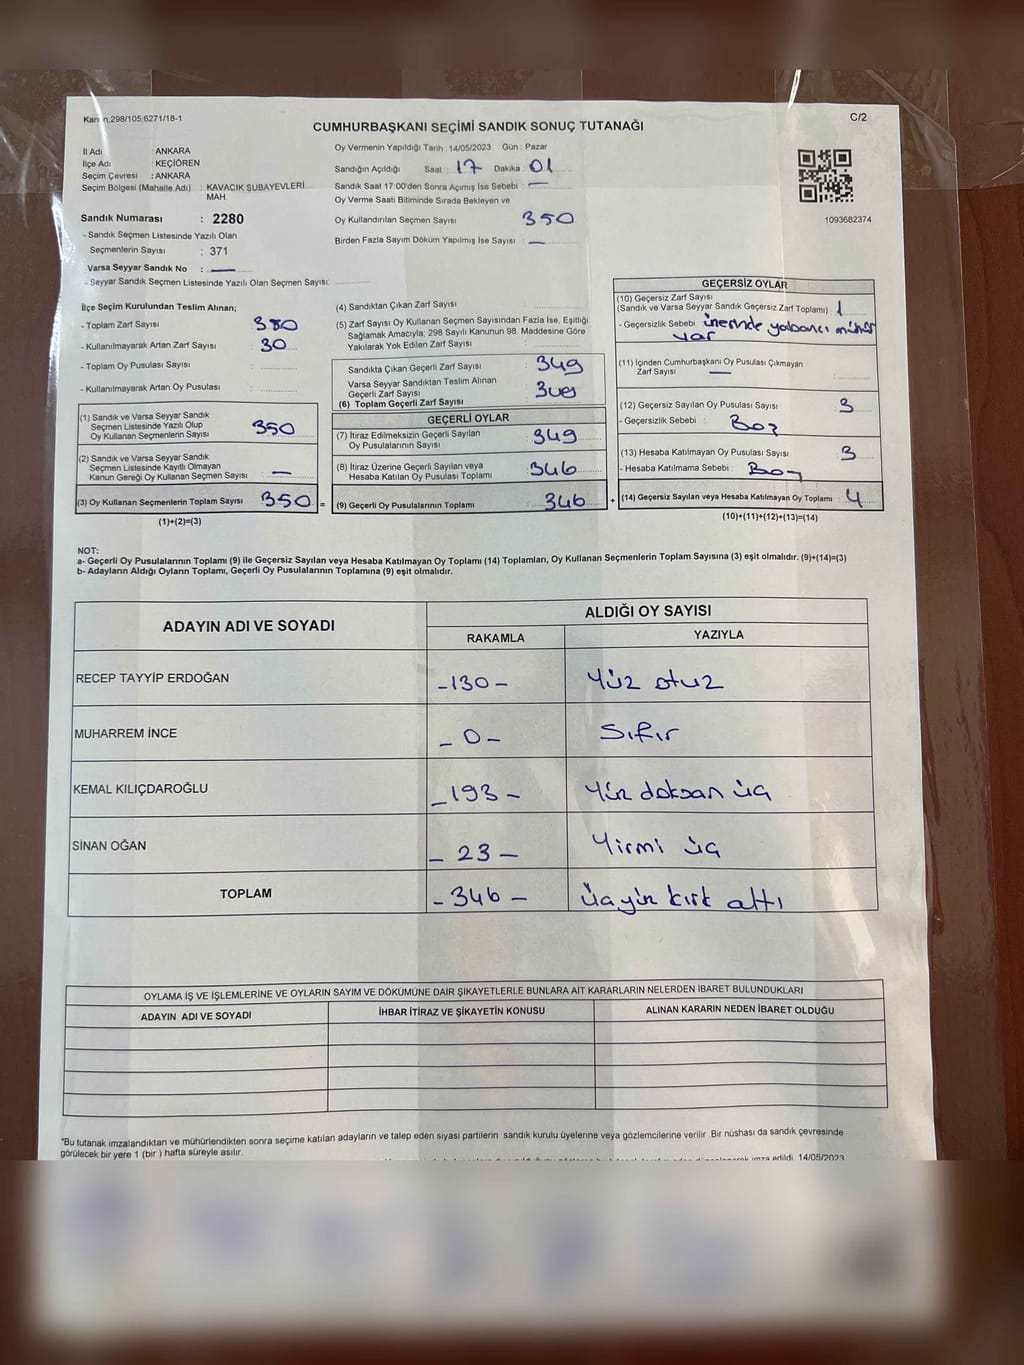 Kanun;298/105;6271/18-1
C/2
CUMHURBAŞKANI SEÇİMİ SANDIK SONUÇ TUTANAĞI
İl Adı : ANKARA
İlçe Adı : KEÇİÖREN
Seçim Çevresi : ANKARA
Seçim Bölgesi (Mahalle Adı) : KAVACIK SUBAYEVLERİ
MAH.
Sandık Numarası : 2280
- Sandık Seçmen Listesinde Yazılı Olan
Seçmenlerin Sayısı : 371
Varsa Seyyar Sandık No : —
- Seyyar Sandık Seçmen Listesinde Yazılı Olan Seçmen Sayısı:
Oy Vermenin Yapıldığı Tarih : 14/05/2023 Gün : Pazar
Sandığın Açıldığı Saat : 17 Dakika 01
Sandık Saat 17:00'den Sonra Açımış İse Sebebi : —
Oy Verme Saati Bitiminde Sırada Bekleyen ve
Oy Kullandırılan Seçmen Sayısı 350
Birden Fazla Sayım Döküm Yapılmış İse Sayısı : —
1093682374
İlçe Seçim Kurulundan Teslim Alınan;
- Toplam Zarf Sayısı 380
- Kullanılmayarak Artan Zarf Sayısı : 30
- Toplam Oy Pusulası Sayısı :
- Kullanılmayarak Artan Oy Pusulası :
(1) Sandık ve Varsa Seyyar Sandık
Seçmen Listesinde Yazılı Olup
Oy Kullanan Seçmenlerin Sayısı : 350
(2) Sandık ve Varsa Seyyar Sandık
Seçmen Listesinde Kayıtlı Olmayan
Kanun Gereği Oy Kullanan Seçmen Sayısı : —
(3) Oy Kullanan Seçmenlerin Toplam Sayısı : 350 =
(1)+(2)=(3)
(4) Sandıktan Çıkan Zarf Sayısı
(5) Zarf Sayısı Oy Kullanan Seçmen Sayısından Fazla İse, Eşitliği
Sağlamak Amacıyla, 298 Sayılı Kanunun 98. Maddesine Göre
Yakılarak Yok Edilen Zarf Sayısı
Sandıkta Çıkan Geçerli Zarf Sayısı : 349
Varsa Seyyar Sandıktan Teslim Alınan
Geçerli Zarf Sayısı :
(6) Toplam Geçerli Zarf Sayısı
GEÇERLİ OYLAR
(7) İtiraz Edilmeksizin Geçerli Sayılan
Oy Pusulalarının Sayısı : 349
(8) İtiraz Üzerine Geçerli Sayılan veya
Hesaba Katılan Oy Pusulası Toplamı : 346
(9) Geçerli Oy Pusulalarının Toplamı : 346 +
GEÇERSİZ OYLAR
(10) Geçersiz Zarf Sayısı
(Sandık ve Varsa Seyyar Sandık Geçersiz Zarf Toplamı) : 1
- Geçersizlik Sebebi : üzerinde yabancı mühür
var
(11) İçinden Cumhurbaşkanı Oy Pusulası Çıkmayan
Zarf Sayısı — :
(12) Geçersiz Sayılan Oy Pusulası Sayısı : 3
- Geçersizlik Sebebi : Boş
(13) Hesaba Katılmayan Oy Pusulası Sayısı : 3
- Hesaba Katılmama Sebebi : Boş
(14) Geçersiz Sayılan veya Hesaba Katılmayan Oy Toplamı : 4
(10)+(11)+(12)+(13)=(14)
NOT:
a- Geçerli Oy Pusulalarının Toplamı (9) ile Geçersiz Sayılan veya Hesaba Katılmayan Oy Toplamı (14) Toplamları, Oy Kullanan Seçmenlerin Toplam Sayısına (3) eşit olmalıdır. (9)+(14)=(3)
b- Adayların Aldığı Oyların Toplamı, Geçerli Oy Pusulalarının Toplamına (9) eşit olmalıdır.
ADAYIN ADI VE SOYADI
ALDIĞI OY SAYISI
RAKAMLA YAZIYLA
RECEP TAYYİP ERDOĞAN -130- Yüz otuz
MUHARREM İNCE -0- Sıfır
KEMAL KILIÇDAROĞLU -193- Yüz doksan üç
SİNAN OĞAN -23- Yirmi üç
TOPLAM -346- Üçyüz kırk altı
OYLAMA İŞ VE İŞLEMLERİNE VE OYLARIN SAYIM VE DÖKÜMÜNE DAİR ŞİKAYETLERLE BUNLARA AİT KARARLARIN NELERDEN İBARET BULUNDUKLARI
ADAYIN ADI VE SOYADI İHBAR İTİRAZ VE ŞİKAYETİN KONUSU ALINAN KARARIN NEDEN İBARET OLDUĞU
"Bu tutanak imzalandıktan ve mühürlendikten sonra seçime katılan adayların ve talep eden siyasi partilerin sandık kurulu üyelerine veya gözlemcilerine verilir. Bir nüshası da sandık çevresinde
görülecek bir yere 1 (bir ) hafta süreyle asılır.
imza edildi. 14/05/2023